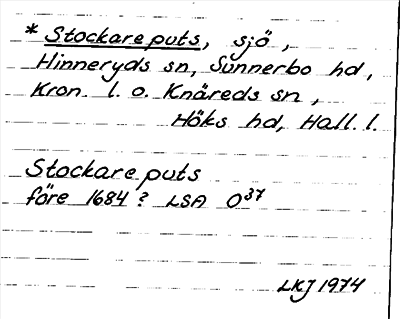 * Stockare puts, sjö,
Hinneryds sn, Sunnerbo hd,
Kron. l. o. Knäreds sn,
Höks hd, Hall. l.
Stockare puts
före 1684? LSA O37
LKJ 1974